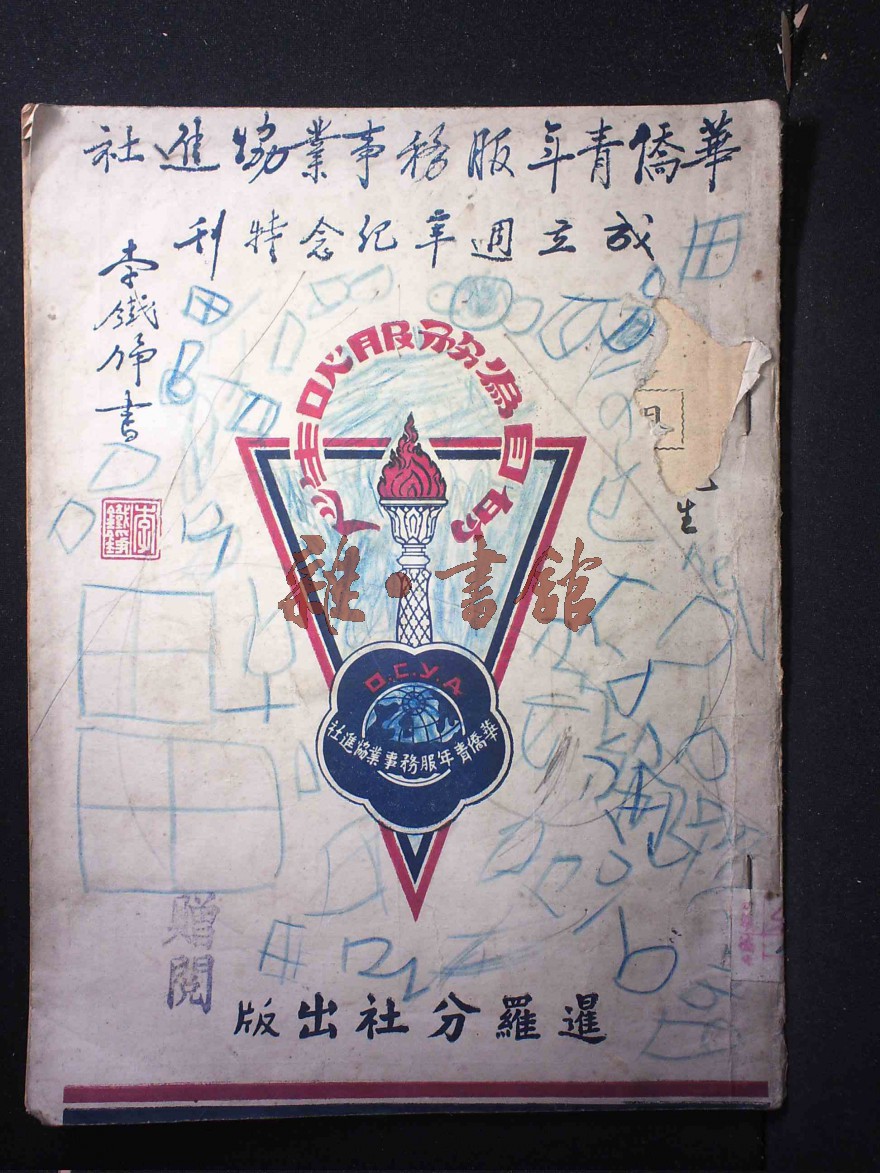 華僑青年服務事業協進社
成立週年紀念特刊
李鐵錚書
人生以服務為目的
李鐵錚
生
雜·書館
O.C.Y.A.
華僑青年服務事業協進社
贈閱
暹羅分社出版